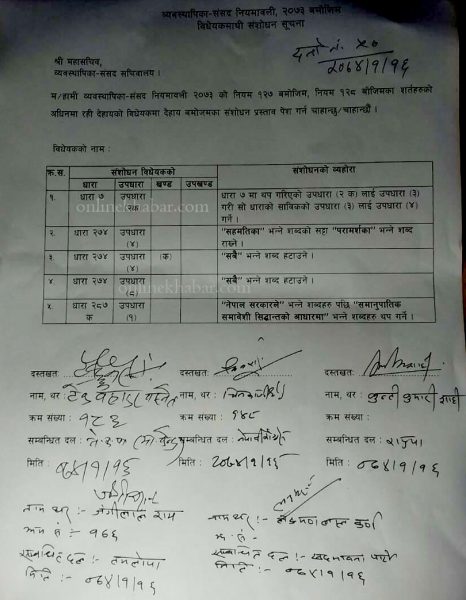 व्यवस्थापिका-संसद नियमावली, २०७३ बमोजिम
विधेयकमाथी संशोधन सूचना
दर्ता नं. २०
२०७४/१/१६
श्री महासचिव,
व्यवस्थापिका-संसद सचिवालय ।
म/हामी व्यवस्थापिका-संसद नियमावली २०७३ को नियम १२७ बमोजिम, नियम १२८ बमोजिमका शर्तहरुको
अधिनमा रही देहायको विधेयकमा देहाय बमोजमका संशोधन प्रस्ताव पेश गर्न चाहान्छु/चाहान्छौं ।
विधेयकको नाम :
क्र.स. संशोधन विधेयकको संशोधनको व्यहोरा
धारा उपधारा खण्ड उपखण्ड
१. धारा ७ उपधारा २क धारा ७ मा थप गरिएको उपधारा (२ क) लाई उपधारा (३)
गरी सो धाराको साविकको उपधारा (३) लाई उपधारा (४)
गर्ने ।
२. धारा २७४ उपधारा (४) "सहमतिका" भन्ने शब्दको सट्टा "परामर्शका" भन्ने शब्द
राख्ने ।
३. धारा २७४ उपधारा (४) (क) "सबै" भन्ने शब्द हटाउने ।
४. धारा २७४ उपधारा (८) "सबै" भन्ने शब्द हटाउने ।
५. धारा २८७ क उपधारा (१) "नेपाल सरकारले" भन्ने शब्दहरु पछि "समानुपातिक
समावेशी सिद्धान्तको आधारमा" भन्ने शब्दहरु थप गर्ने ।
onlinekhabar.com
onlinekhabar.com
दस्तखत: दस्तखत: दस्तखत:
नाम, थर : नाम, थर : नाम, थर :
क्रम संख्या : १९६ क्रम संख्या : १४८ क्रम संख्या :
सम्बन्धित दल : सम्बन्धित दल : सम्बन्धित दल : राप्रपा
मिति : ०७४/१/१६ मिति : २०७४/१/१६ मिति : ०७४/१/१६
नाम थर :- जंगीलाल राय नाम थर :-
क्रम सं :- १७६ क्रम सं. :-
सम्बन्धित दल :- तमलोपा सम्बन्धित दल :- सद्भावना पार्टी
मिति :- ०७४/१/१६ मिति :- ०७४/१/१६